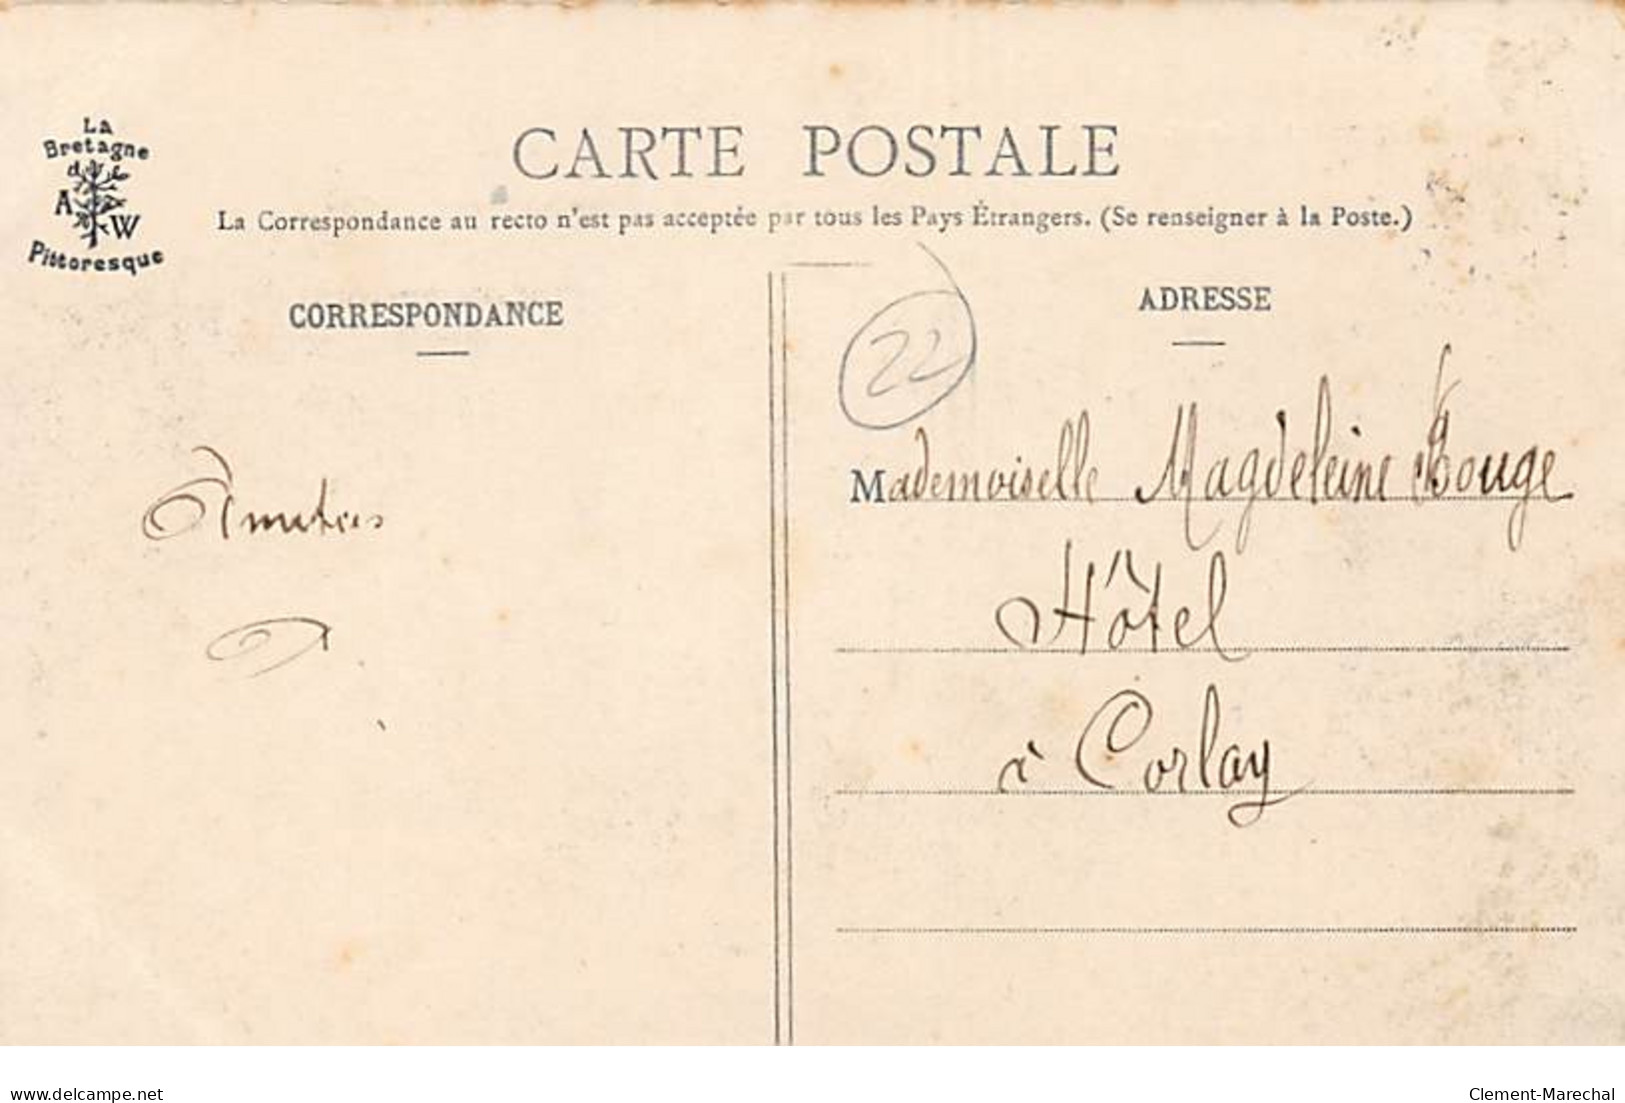 La
Bretagne
A W
Pittoresque
CARTE POSTALE
La Correspondance au recto n'est pas acceptée par tous les Pays Étrangers. (Se renseigner à la Poste.)
CORRESPONDANCE
ADRESSE
22
Mademoiselle Magdeleine Bouge
Hôtel
à Corlay
delcampe.net
Clement-Marechal